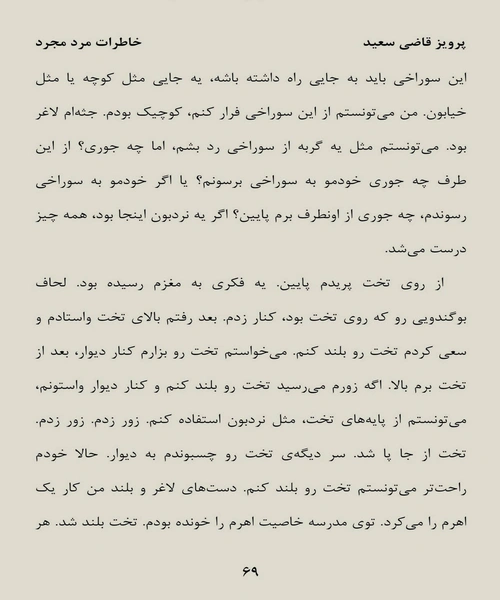 پرویز قاضی سعید
خاطرات مرد مجرد
این سوراخی باید به جایی راه داشته باشه، یه جایی مثل کوچه یا مثل
خیابون. من می‌تونستم از این سوراخی فرار کنم، کوچیک بودم. جثه‌ام لاغر
بود. می‌تونستم مثل یه گربه از سوراخی رد بشم، اما چه جوری؟ از این
طرف چه جوری خودمو به سوراخی برسونم؟ یا اگر خودمو به سوراخی
رسوندم، چه جوری از اونطرف برم پایین؟ اگر یه نردبون اینجا بود، همه چیز
درست می‌شد.
از روی تخت پریدم پایین. یه فکری به مغزم رسیده بود. لحاف
بوگندویی رو که روی تخت بود، کنار زدم. بعد رفتم بالای تخت واستادم و
سعی کردم تخت رو بلند کنم. می‌خواستم تخت رو بزارم کنار دیوار، بعد از
تخت برم بالا. اگه زورم می‌رسید تخت رو بلند کنم و کنار دیوار واستونم،
می‌تونستم از پایه‌های تخت، مثل نردبون استفاده کنم. زور زدم. زور زدم.
تخت از جا پا شد. سر دیگه‌ی تخت رو چسبوندم به دیوار. حالا خودم
راحت‌تر می‌تونستم تخت رو بلند کنم. دست‌های لاغر و بلند من کار یک
اهرم را می‌کرد. توی مدرسه خاصیت اهرم را خونده بودم. تخت بلند شد. هر
۶۹